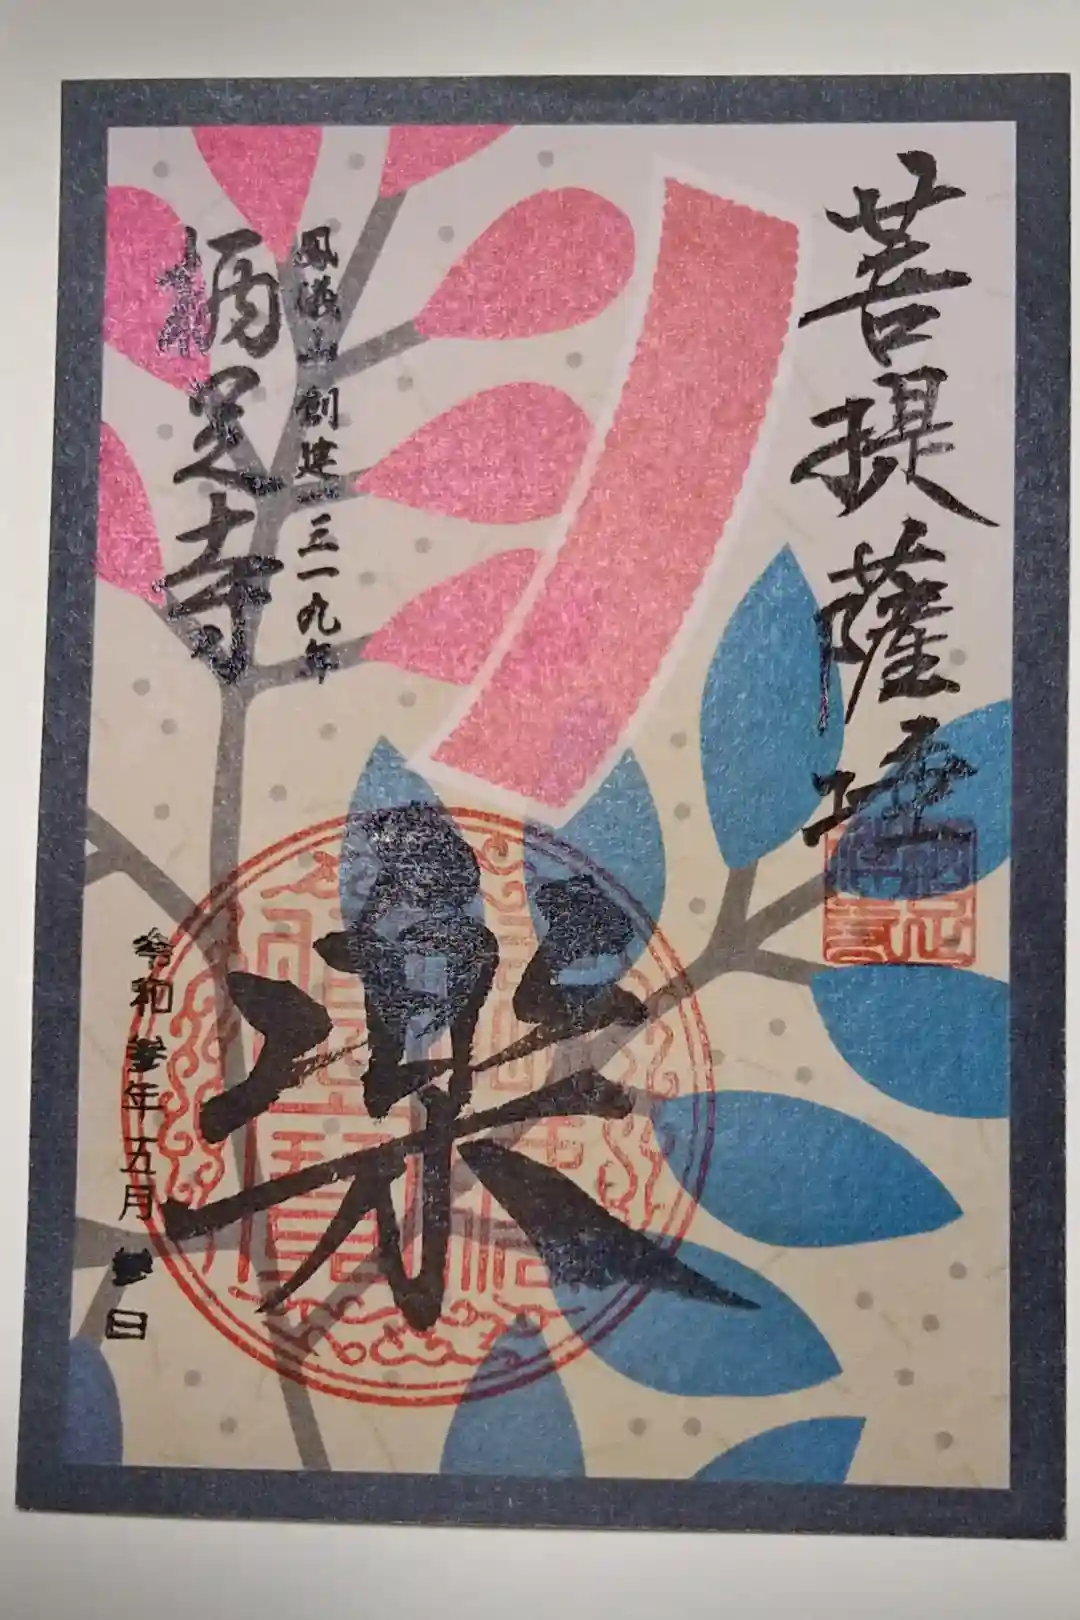 菩提薩埵
楽
鳳儀山創建一三一九年
栖足寺
令和参年五月参日